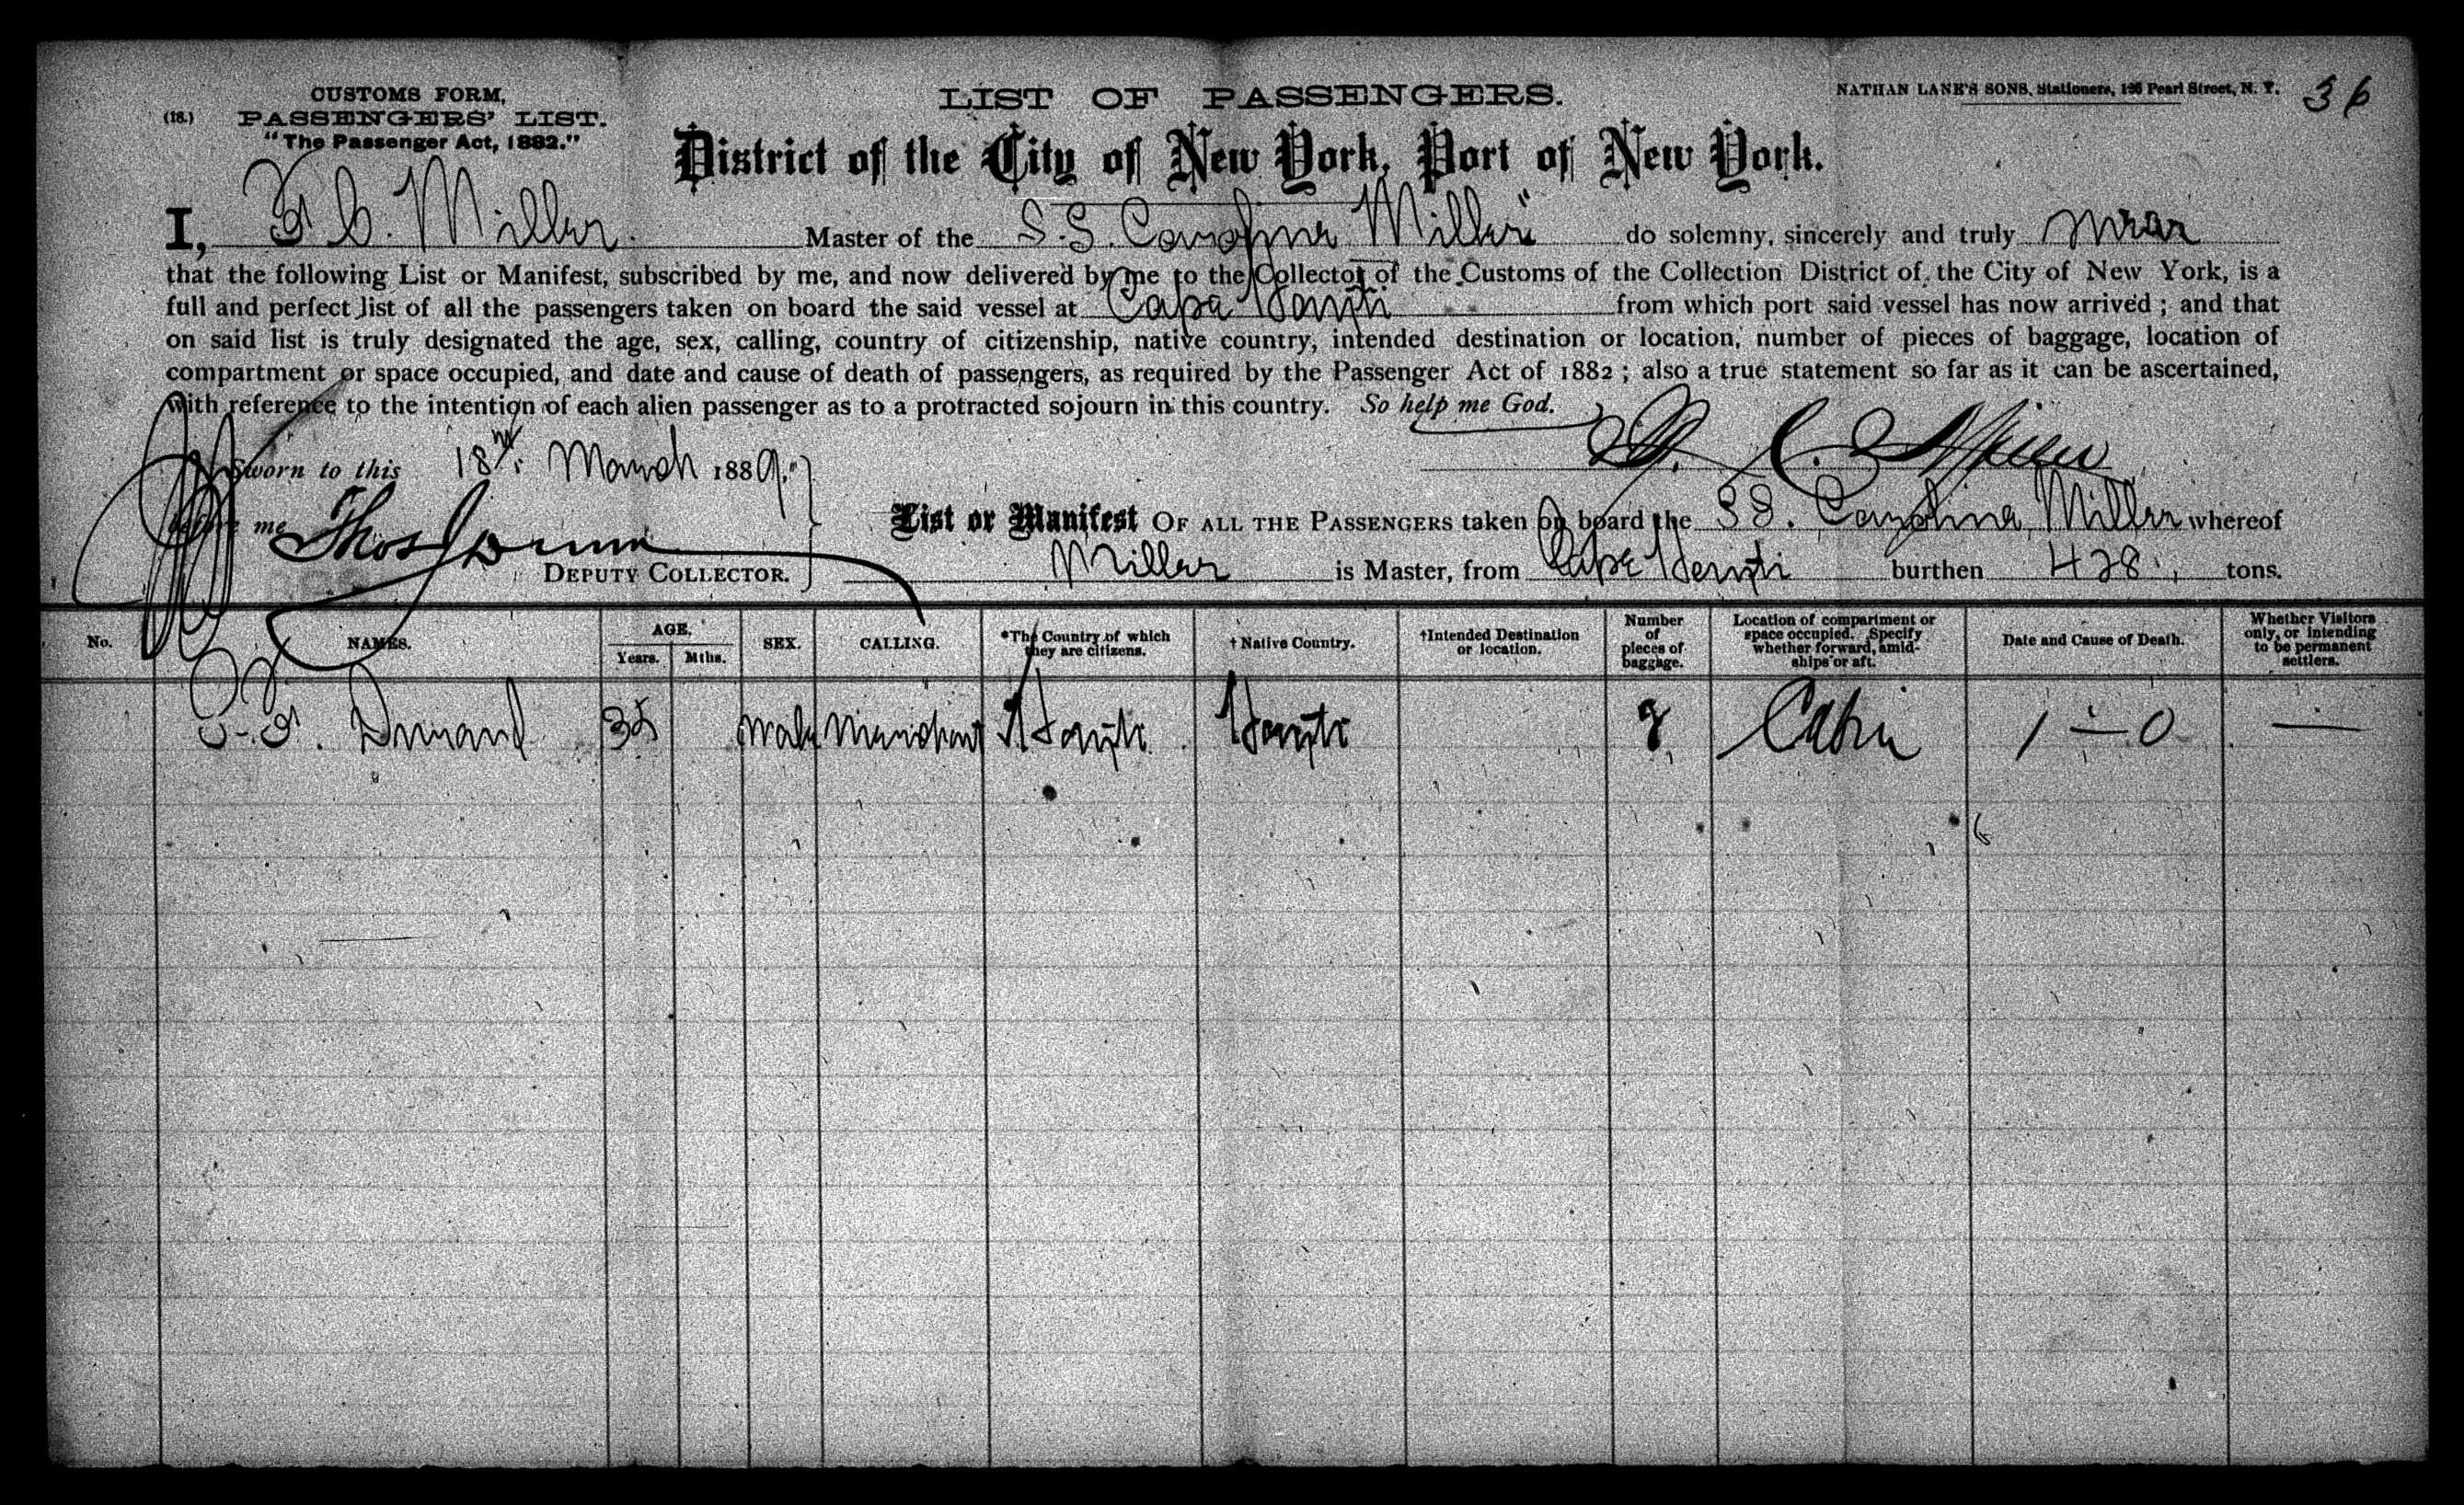 CUSTOMS FORM,
(18.) PASSENGERS' LIST.
"The Passenger Act, 1882."
LIST OF PASSENGERS.
NATHAN LANE'S SONS, Stationers, 196 Pearl Street, N. Y.
36
District of the City of New York, Port of New York.
I, C. Miller Master of the S.S. Carolina Miller" do solemny, sincerely and truly swear
that the following List or Manifest, subscribed by me, and now delivered by me to the Collector of the Customs of the Collection District of the City of New York, is a
full and perfect list of all the passengers taken on board the said vessel at Cape Hayti from which port said vessel has now arrived; and that
on said list is truly designated the age, sex, calling, country of citizenship, native country, intended destination or location, number of pieces of baggage, location of
compartment or space occupied, and date and cause of death of passengers, as required by the Passenger Act of 1882; also a true statement so far as it can be ascertained,
with reference to the intention of each alien passenger as to a protracted sojourn in this country. So help me God.
Sworn to this 18th March 1889.
C. Miller
before me Thos
DEPUTY COLLECTOR.
List or Manifest OF ALL THE PASSENGERS taken on board the SS. Carolina Miller whereof
Miller is Master, from Cape Hayti burthen 428 tons.
No. NAMES. AGE. Years. Mths. SEX. CALLING. *The Country of which they are citizens. †Native Country. †Intended Destination or location. Number of pieces of baggage. Location of compartment or space occupied. Specify whether forward, amidships or aft. Date and Cause of Death. Whether Visitors only, or intending to be permanent settlers.
Durand 35 Male Merchant Hayti Hayti Cabin 1 — 0 —